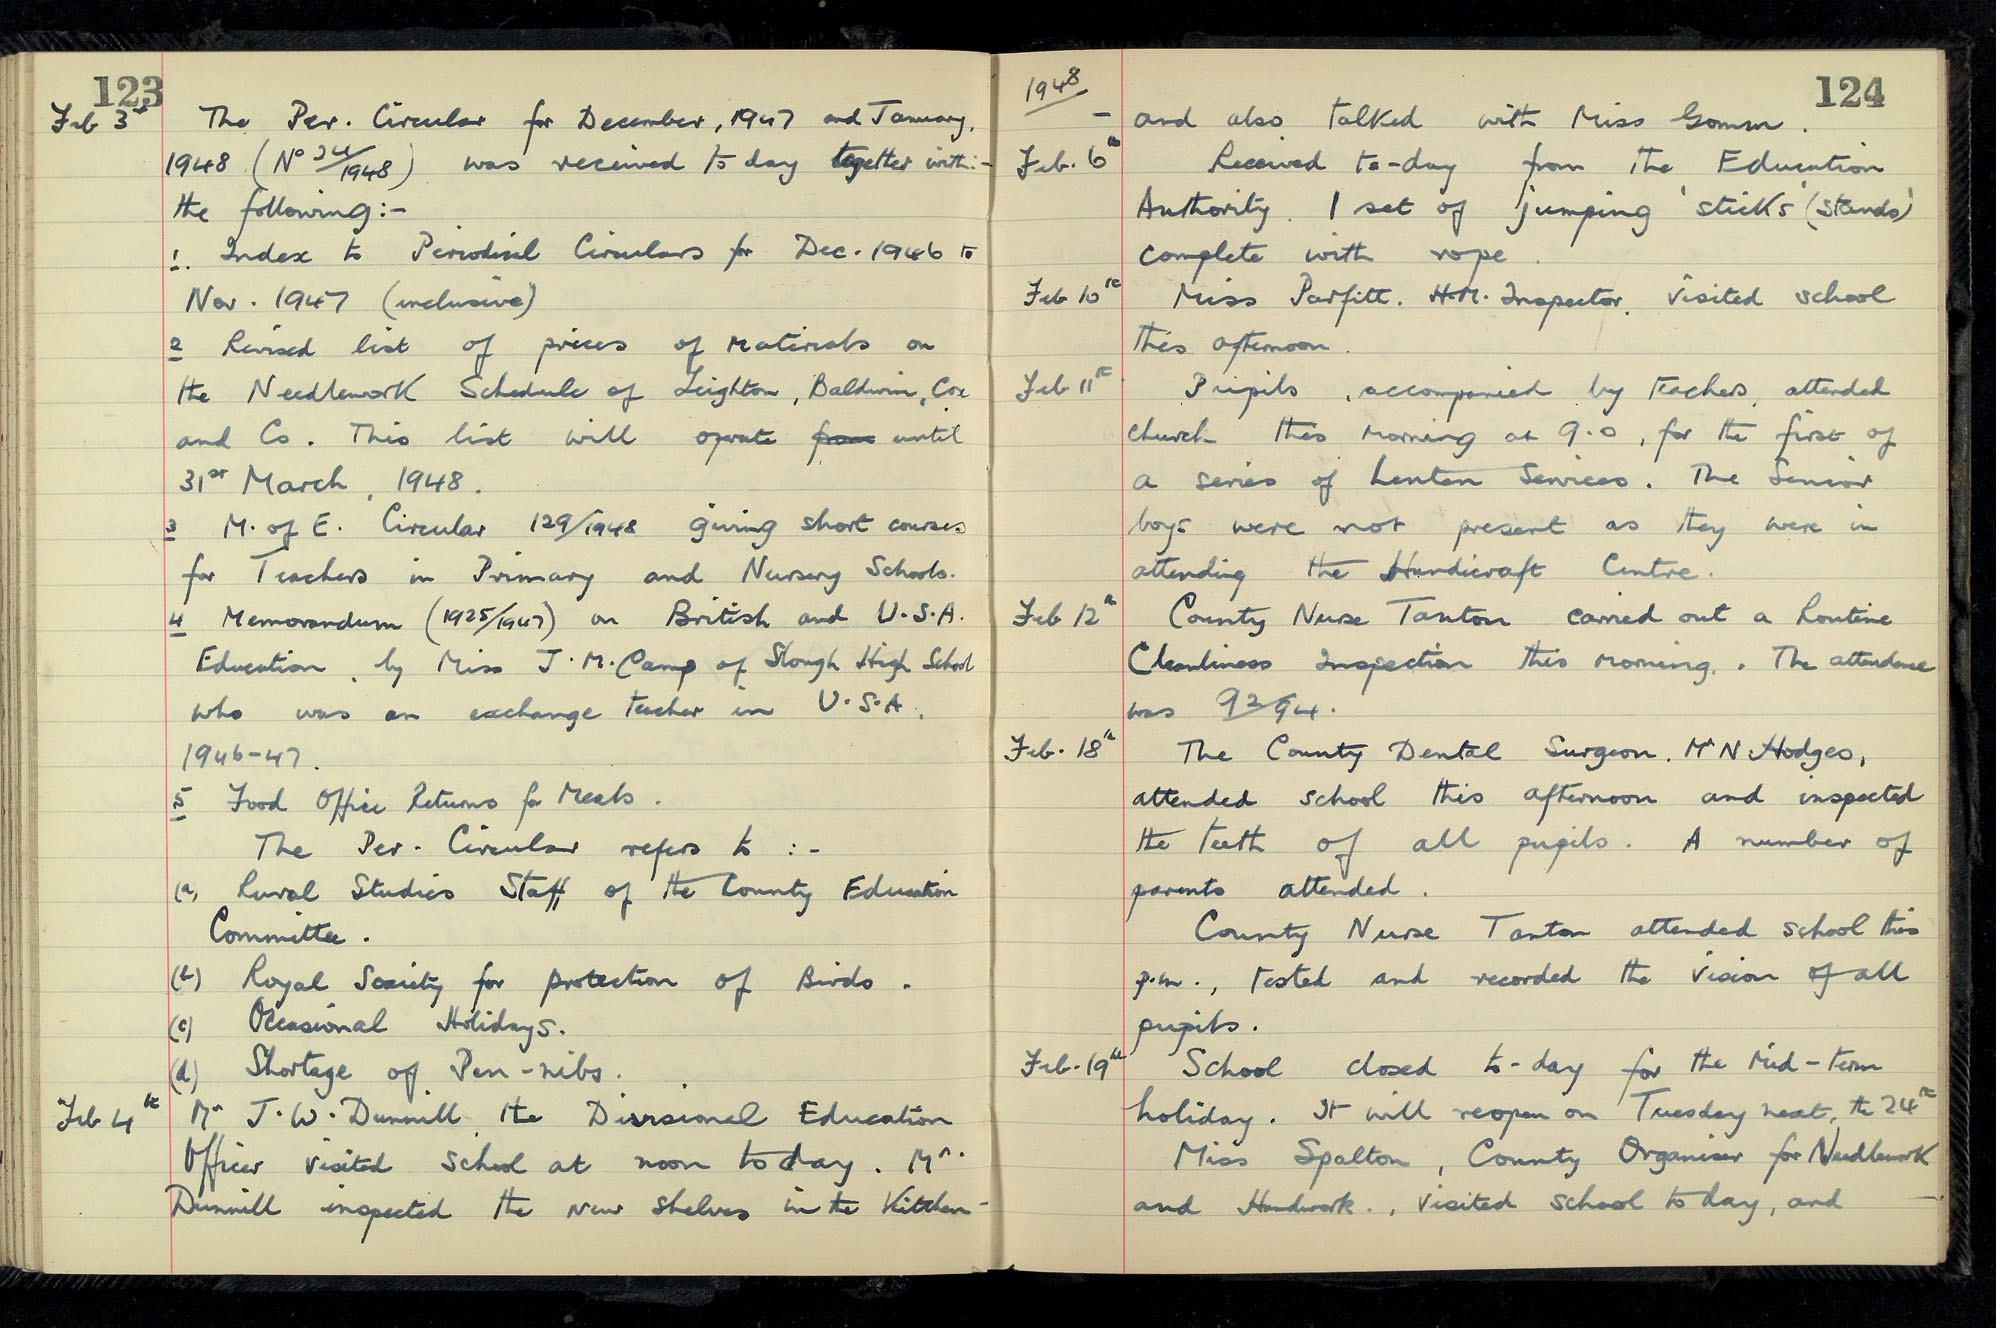 123
Feb 3rd The Per. Circular for December, 1947 and January,
1948 (No 24/1948) was received to day together with:-
the following:-
1. Index to Periodical Circulars for Dec. 1946 to
Nov. 1947 (inclusive)
2 Revised list of prices of materials on
the Needlework Schedule of Leighton, Baldwin, Cox
and Co. This list will operate from until
31st March, 1948.
3 M. of E. Circular 129/1948 giving short courses
for Teachers in Primary and Nursery Schools.
4 Memorandum (1925/1947) on British and U.S.A.
Education, by Miss J. M. Camp of Slough High School
who was an exchange teacher in U.S.A.
1946-47.
5 Food Office Returns for Meals.
The Per. Circular refers to :-
(a) Rural Studies Staff of the County Education
Committee.
(b) Royal Society for protection of Birds.
(c) Occasional Holidays.
(d) Shortage of Pen-nibs.
Feb 4th Mr J. W. Dunnill the Divisional Education
Officer visited school at noon to day. Mr.
Dunnill inspected the new shelves in the Kitchen-
124
1948
- and also talked with Miss Gomm.
Feb. 6th Received to-day from the Education
Authority. 1 set of 'jumping sticks' (stands)
complete with rope.
Feb 10th Miss Parfitt. H.M. Inspector, visited school
this afternoon.
Feb 11th Pupils, accompanied by teachers, attended
church this morning at 9.0, for the first of
a series of Lenten Services. The Senior
boys were not present as they were in
attending the Handicraft Centre.
Feb 12th County Nurse Tanton carried out a Routine
Cleanliness Inspection this morning. The attendance
was 92/94.
Feb. 18th The County Dental Surgeon. Mr N Hodges,
attended school this afternoon and inspected
the teeth of all pupils. A number of
parents attended.
County Nurse Tanton attended school this
p.m., tested and recorded the vision of all
pupils.
Feb. 19th School closed to-day for the Mid-term
holiday. It will reopen on Tuesday next, the 24th
Miss Spalton, County Organiser for Needlework
and Handwork., visited school to day, and